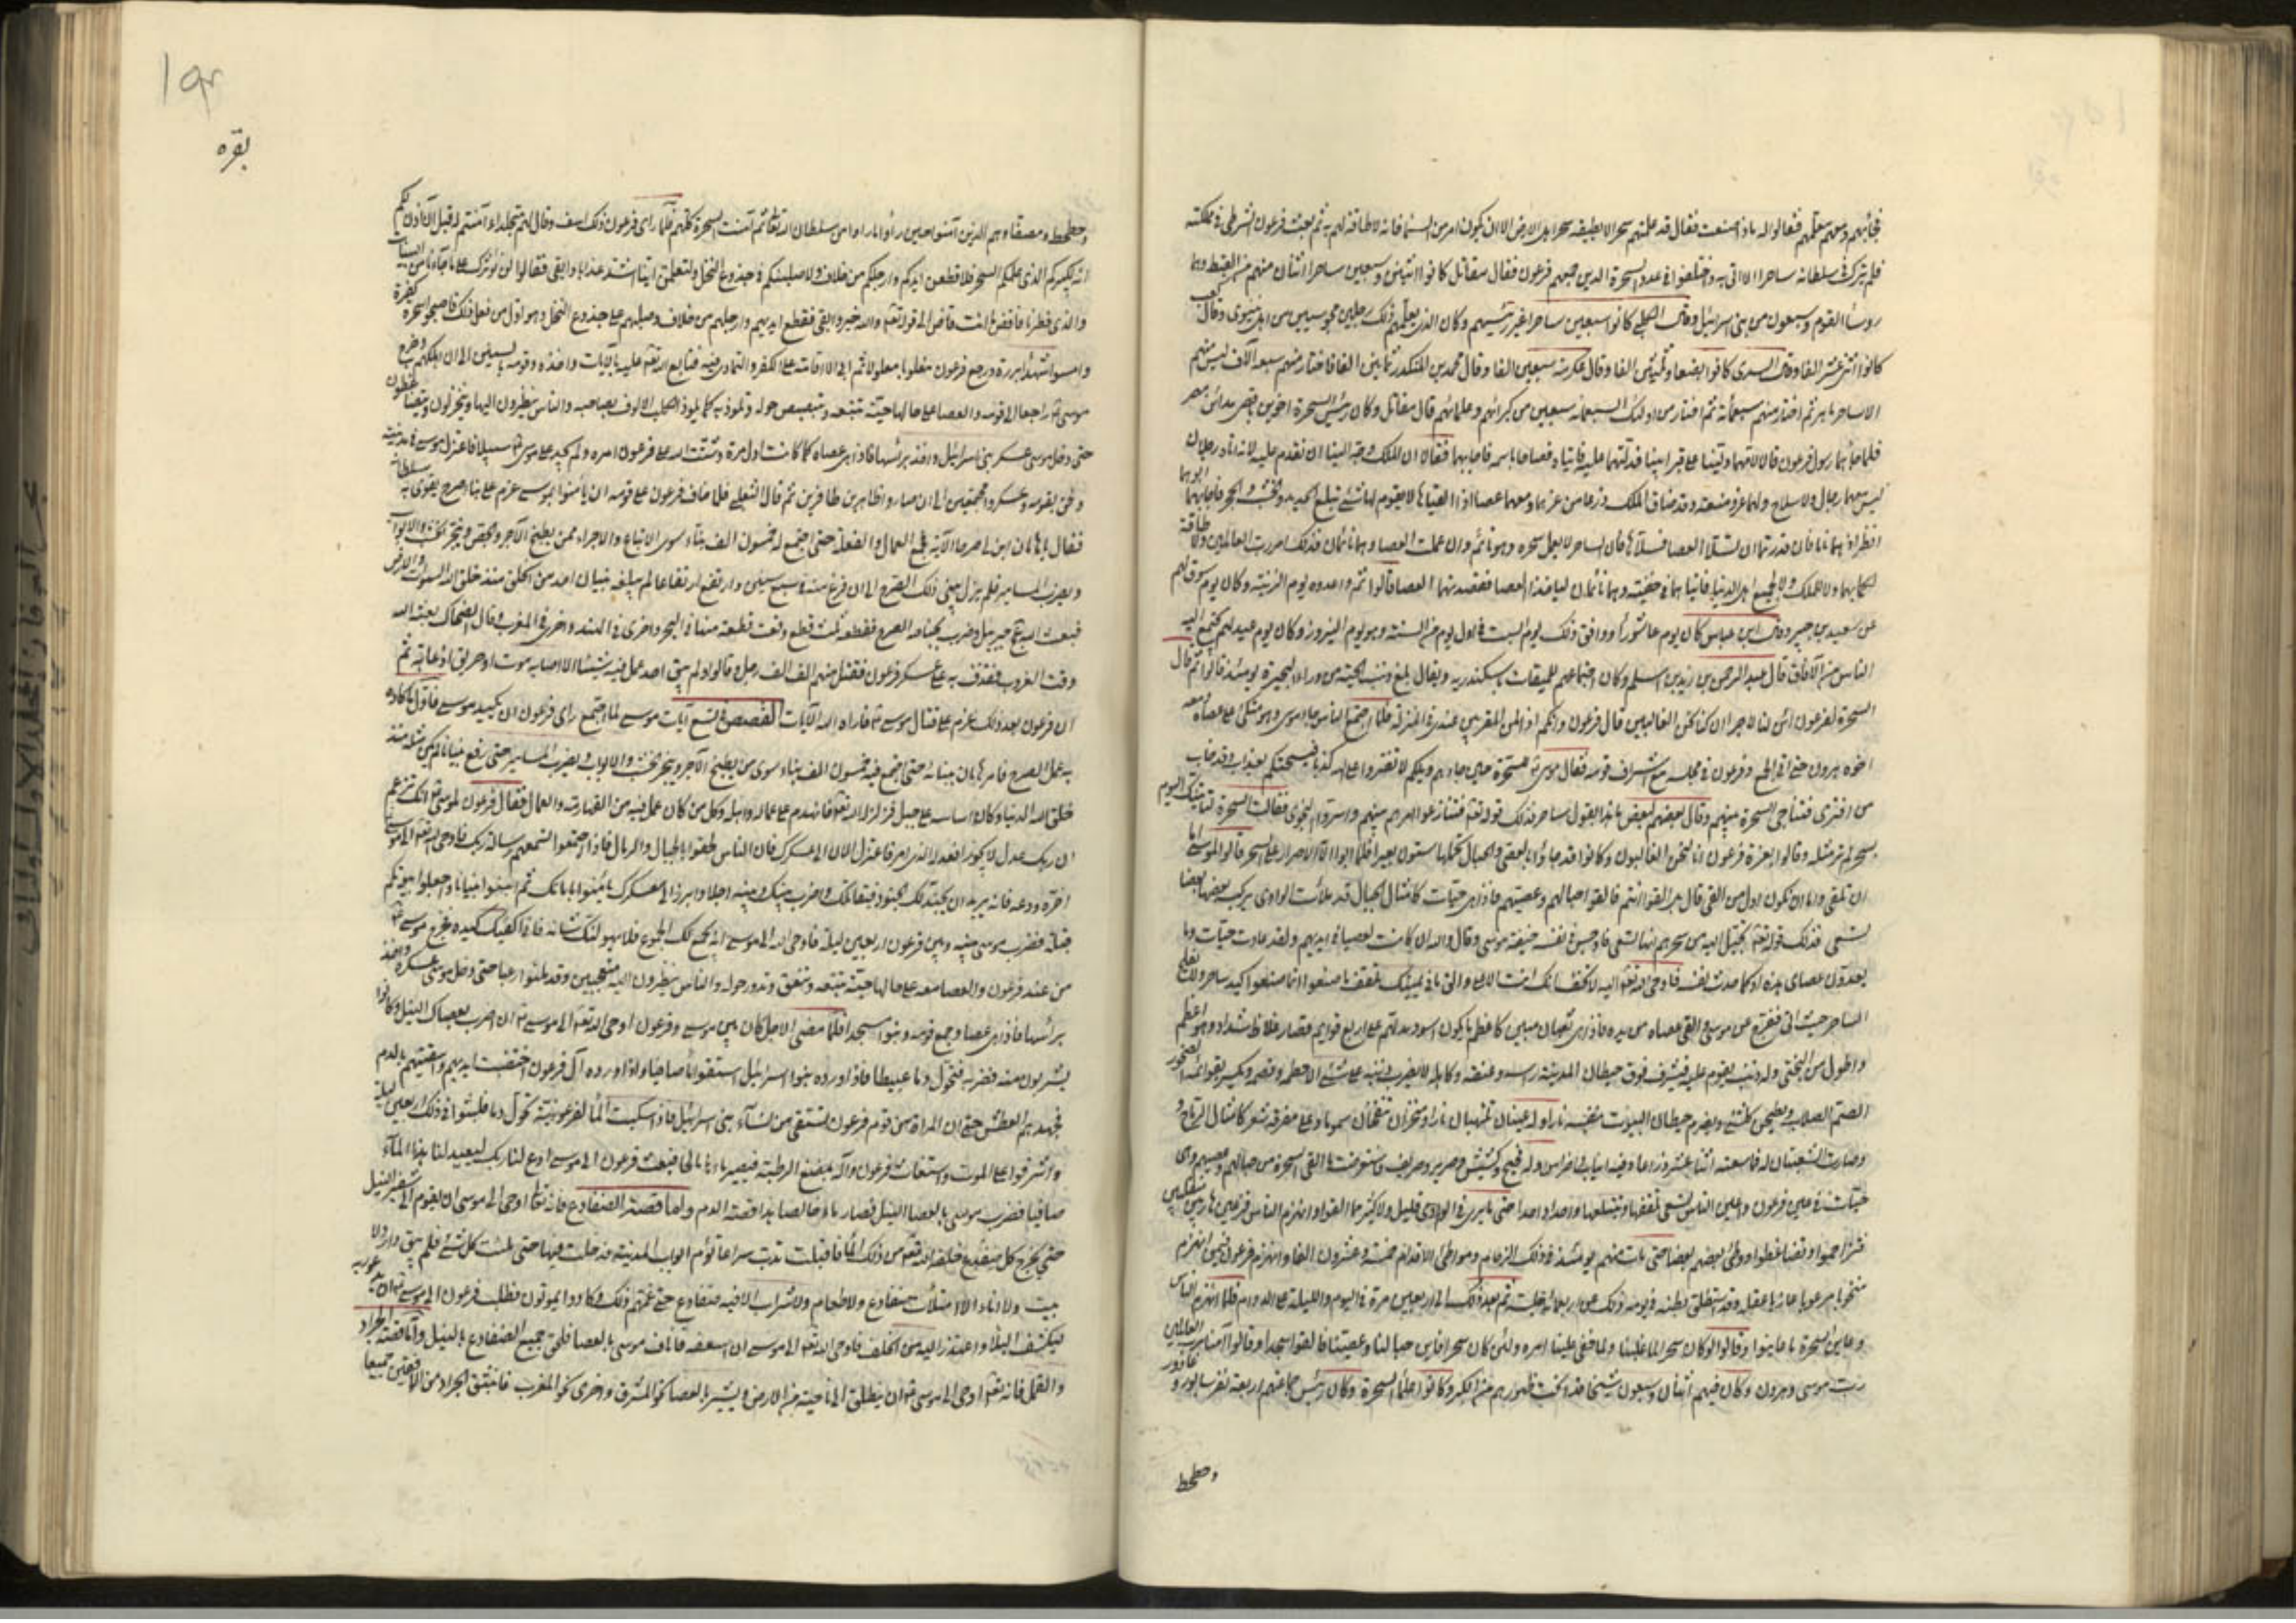 فجائهم ومعهم معلمهم فقالوا له ماذا صنعت فقال قد علمتهم سحرا لا يطيقه سحر اهل الارض الا ان يكون امر من السماء فانه لا طاقة لهم به ثم بعث فرعون الشرطي في مملكته
فلم يترك في سلطانه ساحرا الا اتى به واختلفوا في عدد السحرة الذين جمعهم فرعون فقال مقاتل كانوا اثنين وسبعين ساحرا اثنان منهم من القبط وهما
روسا القوم وسبعون من بنى اسرائيل وقال الكلبي كانوا سبعين ساحرا غير رئيسهم وكان الذى يعلمهم ذلك رجلين مجوسيين من اهل نينوى وقال كعب
كانوا اثنى عشر الفا وقال السدى كانوا بضعا وثلثين الفا وقال عكرمة سبعين الفا وقال محمد بن المنكدر ثمانين الفا فاختار منهم سبعة آلاف ليس منهم
الا ساحر ماهر ثم اختار منهم سبعمائة ثم اختار من اولئك السبعمائة سبعين من كبرائهم وعلمائهم قال مقاتل وكان رئيس السحرة اخوين باقصى مدائن مصر
فلما جائهما رسول فرعون قالا لامهما دلينا على قبر ابينا فدلتهما عليه فاتياه فصاحا باسمه فاجابهما فقالا ان الملك وجه الينا ان نقدم عليه لانه اتاه رجلان
ليس معهما رجال ولا سلاح ولهما عز ومنعة وقد ضاق الملك ذرعا من عزهما ومعهما عصا اذا القياها لا يقوم لها شئ تبلع الحديد والخشب والحجر فاجابهما ابوهما
انظرا اذا هما ناما فان قدرتما ان تسلا العصا فسلاها فان الساحر لا يعمل سحره وهو نائم وان عملت العصا وهما نائمان فذلك امر رب العالمين ولا طاقة
لكما بهما ولا للملك ولا لجميع اهل الدنيا فاتياهما في خفية وهما نائمان لياخذا العصا فقصدتهما العصا قالوا ثم واعدوه يوم الزينة وكان يوم سوق لهم
عن سعيد بن جبير وقال ابن عباس كان يوم عاشوراء ووافق ذلك يوم السبت في اول يوم من السنة وهو يوم النيروز وكان يوم عيد لهم يجتمع اليه
الناس من الآفاق قال عبد الرحمن بن زيد بن اسلم وكان اجتماعهم للميقات باسكندرية ويقال بلغ ذنب الحية من وراء البحيرة يومئذ قالوا ثم قال
السحرة لفرعون ائن لنا لاجرا ان كنا نحن الغالبين قال فرعون وانكم اذا لمن المقربين عندى في المنزلة فلما اجتمع الناس جاء موسى وهو متكئ على عصاه ومعه
اخوه هرون حتى اتى الجمع وفرعون في مجلسه مع اشراف قومه فقال موسى للسحرة حين جاءهم ويلكم لا تفتروا على الله كذبا فيسحتكم بعذاب وقد خاب
من افترى فتناجى السحرة بينهم وقال بعضهم لبعض ما هذا بقول ساحر فذلك قوله تع فتنازعوا امرهم بينهم واسروا النجوى فقالت السحرة لناتينك اليوم
بسحر لم تر مثله وقالوا بعزة فرعون انا لنحن الغالبون وكانوا قد جاؤا بالعصى والحبال تحملها ستون بعيرا فلما ابوا الا الاصرار على السحر قالوا لموسى اما
ان تلقى واما ان نكون اول من القى قال بل القوا انتم فالقوا حبالهم وعصيهم فاذا هي حيات كامثال الجبال قد ملأت الوادى يركب بعضها بعضا
تسعى فذلك قوله تع يخيل اليه من سحرهم انها تسعى فاوجس في نفسه خيفة موسى وقال والله ان كانت لعصيا في ايديهم ولقد عادت حيات وما
يعدون عصاى هذه او كما حدث نفسه فاوحى الله تع اليه لا تخف انك انت الاعلى والق ما في يمينك تلقف ما صنعوا انما صنعوا كيد ساحر ولا يفلح
الساحر حيث اتى ففرج عن موسى والقى عصاه من يده فاذا هي ثعبان مبين كاعظم ما يكون اسود مدلهم على اربع قوائم قصار غلاظ شداد وهو اعظم
واطول من البختى وله ذنب يقوم عليه فيشرف فوق حيطان المدينة راسه وعنقه وكاهله لا يضرب ذنبه على شئ الا حطمه وقصمه ويكسر بقوائمه الصخور
الصم الصلاب ويطحن كل شئ ويضرم حيطان البيوت بنفسه نارا وله عينان تلتهبان نارا ومنخران تنفخان سموما وعلى مفرقه شعر كامثال الرماح و
وصارت الشعبتان له فما سعته اثنا عشر ذراعا وفيه انياب واضراس وله فحيح وكشيش وصرير وصريف فاستعرضت ما القى السحرة من حبالهم وعصيهم وهى
حيات في عين فرعون واعين الناس تسعى تلقفها وتبتلعها واحدا واحدا حتى ما يرى في الوادى قليل ولا كثير مما القوا وانهزم الناس فزعين هاربين منقلبين
فتزاحموا وتضاغطوا ووطئ بعضهم بعضا حتى مات منهم يومئذ في ذلك الزحام ومواطئ الاقدام خمسة وعشرون الفا وانهزم فرعون فيمن انهزم
منخوبا مرعوبا عازبا عقله وقد استطلق بطنه في يومه ذلك عن اربعمائة جلسة ثم بعد ذلك الى اربعين مرة في اليوم والليلة على الدوام فلما انهزم الناس
وعاين السحرة ما عاينوا وقالوا لو كان سحرا لما غلبنا ولما خفى علينا امره ولئن كان سحرا فاين حبالنا وعصينا فالقوا سجدا وقالوا آمنا برب العالمين
رب موسى وهرون وكان فيهم اثنان وسبعون شيخا قد انحنت ظهورهم من الكبر وكانوا علماء السحرة وكان رئيس جماعتهم اربعة نفر سابور و عادور
وحطحط
١٩٢
بقره
وحطحط ومصفا وهم الذين آمنوا حين رأوا ما راوا من سلطان الله تعالى ثم آمنت السحرة كلهم فلما راى فرعون ذلك اسف وقال لهم متجلدا ءامنتم له قبل ان آذن لكم
انه لكبيركم الذى علمكم السحر فلاقطعن ايديكم وارجلكم من خلاف ولاصلبنكم في جذوع النخل ولتعلمن اينا اشد عذابا وابقى فقالوا لن نؤثرك على ما جاءنا من البينات
والذى فطرنا فاقض ما انت قاض الى قوله تع والله خير وابقى فقطع ايديهم وارجلهم من خلاف وصلبهم على جذوع النخل وهو اول من فعل ذلك فاصبحوا سحرة كفرة
وامسوا شهداء بررة ورجع فرعون مغلوبا معلولا ثم ابى الا الاقامة على الكفر والتمادى فيه فتابع الله تع عليه بالآيات واخذه وقومه بالسنين الى ان اهلكهم وخرج
موسى راجعا الى قومه والعصا على حالها حية تتبعه وتبصبص حوله وتلوذ به كما يلوذ الكلب الالوف بصاحبه والناس ينظرون اليها وينخزلون ويتضاغطون
حتى دخل موسى عسكر بنى اسرائيل واخذ براسها فاذا هي عصاه كما كانت اول مرة وشتت الله على فرعون امره ولم يجد على موسى سبيلا فاعتزل موسى في مدينته
ولحق بقومه وعسكروا مجتمعين الى ان صاروا ظاهرين ظافرين ثم قال الثعلبى فلما خاف فرعون على قومه ان يؤمنوا بموسى عزم على بناء صرح يقوى به سلطانه
فقال يا هامان ابن لى صرحا الآية فجمع العمال والفعلة حتى اجتمع له خمسون الف بناء سوى الاتباع والاجراء ممن يطبخ الآجر والجص وينجر الخشب والابواب
ويضرب المسامير فلم يزل يبنى ذلك الصرح الى ان فرغ منه في سبع سنين وارتفع ارتفاعا لم يبلغه بنيان احد من الخلق منذ خلق الله السموات والارض
فبعث الله تع جبريل وضرب بجناحه الصرح فقطعه ثلث قطع وقعت قطعة منها في البحر واخرى في الهند واخرى في المغرب وقال الضحاك بعثه الله
وقت الغروب فقذف به على عسكر فرعون فقتل منهم الف الف رجل وقالوا ولم يبق احد عمل فيه شيئا الا اصابه موت او حريق او عاهة ثم
ان فرعون بعد ذلك عزم على قتال موسى فاراه الله الآيات القصص في تسع آيات موسى لما اجتمع راى فرعون ان يكيد موسى فاول ما كاده
به عمل الصرح فامر هامان ببنيانه حتى اجتمع فيه خمسون الف بناء سوى من يطبخ الآجر وينجر الخشب والابواب ويضرب المسامير حتى رفع بنيانا لم يكن مثله منذ
خلق الله الدنيا وكان اساسه على جبل فزلزله الله تع فانهدم على عماله واهله وكل من كان عمل فيه من القهارمة والعمال فقال فرعون لموسى انك تزعم
ان ربك عدل لا يجور افعدله الذى امر فاعتزل الآن الى عسكرك فان الناس لحقوا بالجبال والرمال فاذا اجتمعوا لتسمعهم رسالة ربك فاوحى الله تع الى موسى
اخره ودعه فانه يريد ان يجند لك الجنود فيقاتلك واضرب بينك وبينه اجلا وابرز الى معسكرك يامنوا بامانك ثم ابنوا بنيانا واجعلوا بيوتكم
قبلة فضرب موسى بينه وبين فرعون اربعين ليلة فاوحى الله الى موسى انه يجمع لك الجموع فلا يهولنك شانه فانى اكفيك كيده فخرج موسى
من عند فرعون والعصا معه على حالها حية تتبعه وتنعق وتدور حوله والناس ينظرون اليه متعجبين وقد ملئوا رعبا حتى دخل موسى عسكره واخذ
براسها فاذا هي عصا وجمع قومه وبنوا مسجدا فلما مضى الاجل كان بين موسى وفرعون اوحى الله تع الى موسى ان اضرب بعصاك النيل وكانوا
يشربون منه فضربه فتحول دما عبيطا فاذا اورده بنوا اسرائيل استقوا ماء صافيا واذا اورده آل فرعون اختضبت ايديهم واسقيتهم بالدم
فجهدهم العطش حتى ان المراة من قوم فرعون تستقى من نساء بنى اسرائيل فاذا سكبت الماء لفرعونية تحول دما فلبثوا في ذلك اربعين ليلة
واشرفوا على الموت واستغاث فرعون وآله بمضغ الرطبة فيصير ماءها مالحا فبعث فرعون الى موسى ادع لنا ربك ليعيد لنا هذا الماء
صافيا فضرب موسى بالعصا النيل فصار ماء خالصا هذا قصة الدم واما قصة الضفادع فانه تعالى اوحى الى موسى ان يقوم الى شفير النيل
حتى يخرج كل ضفدع خلقه الله تع من ذلك الماء فاقبلت تدب سراعا تؤم ابواب المدينة فدخلت فيها حتى ملئت كل شئ فلم يبق دار ولا
بيت ولا اناء الا امتلأت ضفادع ولا طعام ولا شراب الا فيه ضفادع حتى غمهم ذلك وكادوا يموتون فطلب فرعون الى موسى ان يدعو ربه
ليكشف البلاء واعتذر اليه من الخلف فاوحى الله تع الى موسى ان اسعفه فاناف موسى بالعصا فلحق جميع الضفادع بالنيل واما قصة الجراد
والقمل فانه تع اوحى الى موسى ان ينطلق الى ناحية من الارض ويشير بالعصا نحو المشرق واخرى نحو المغرب فانبثق الجراد من الافقين جميعا